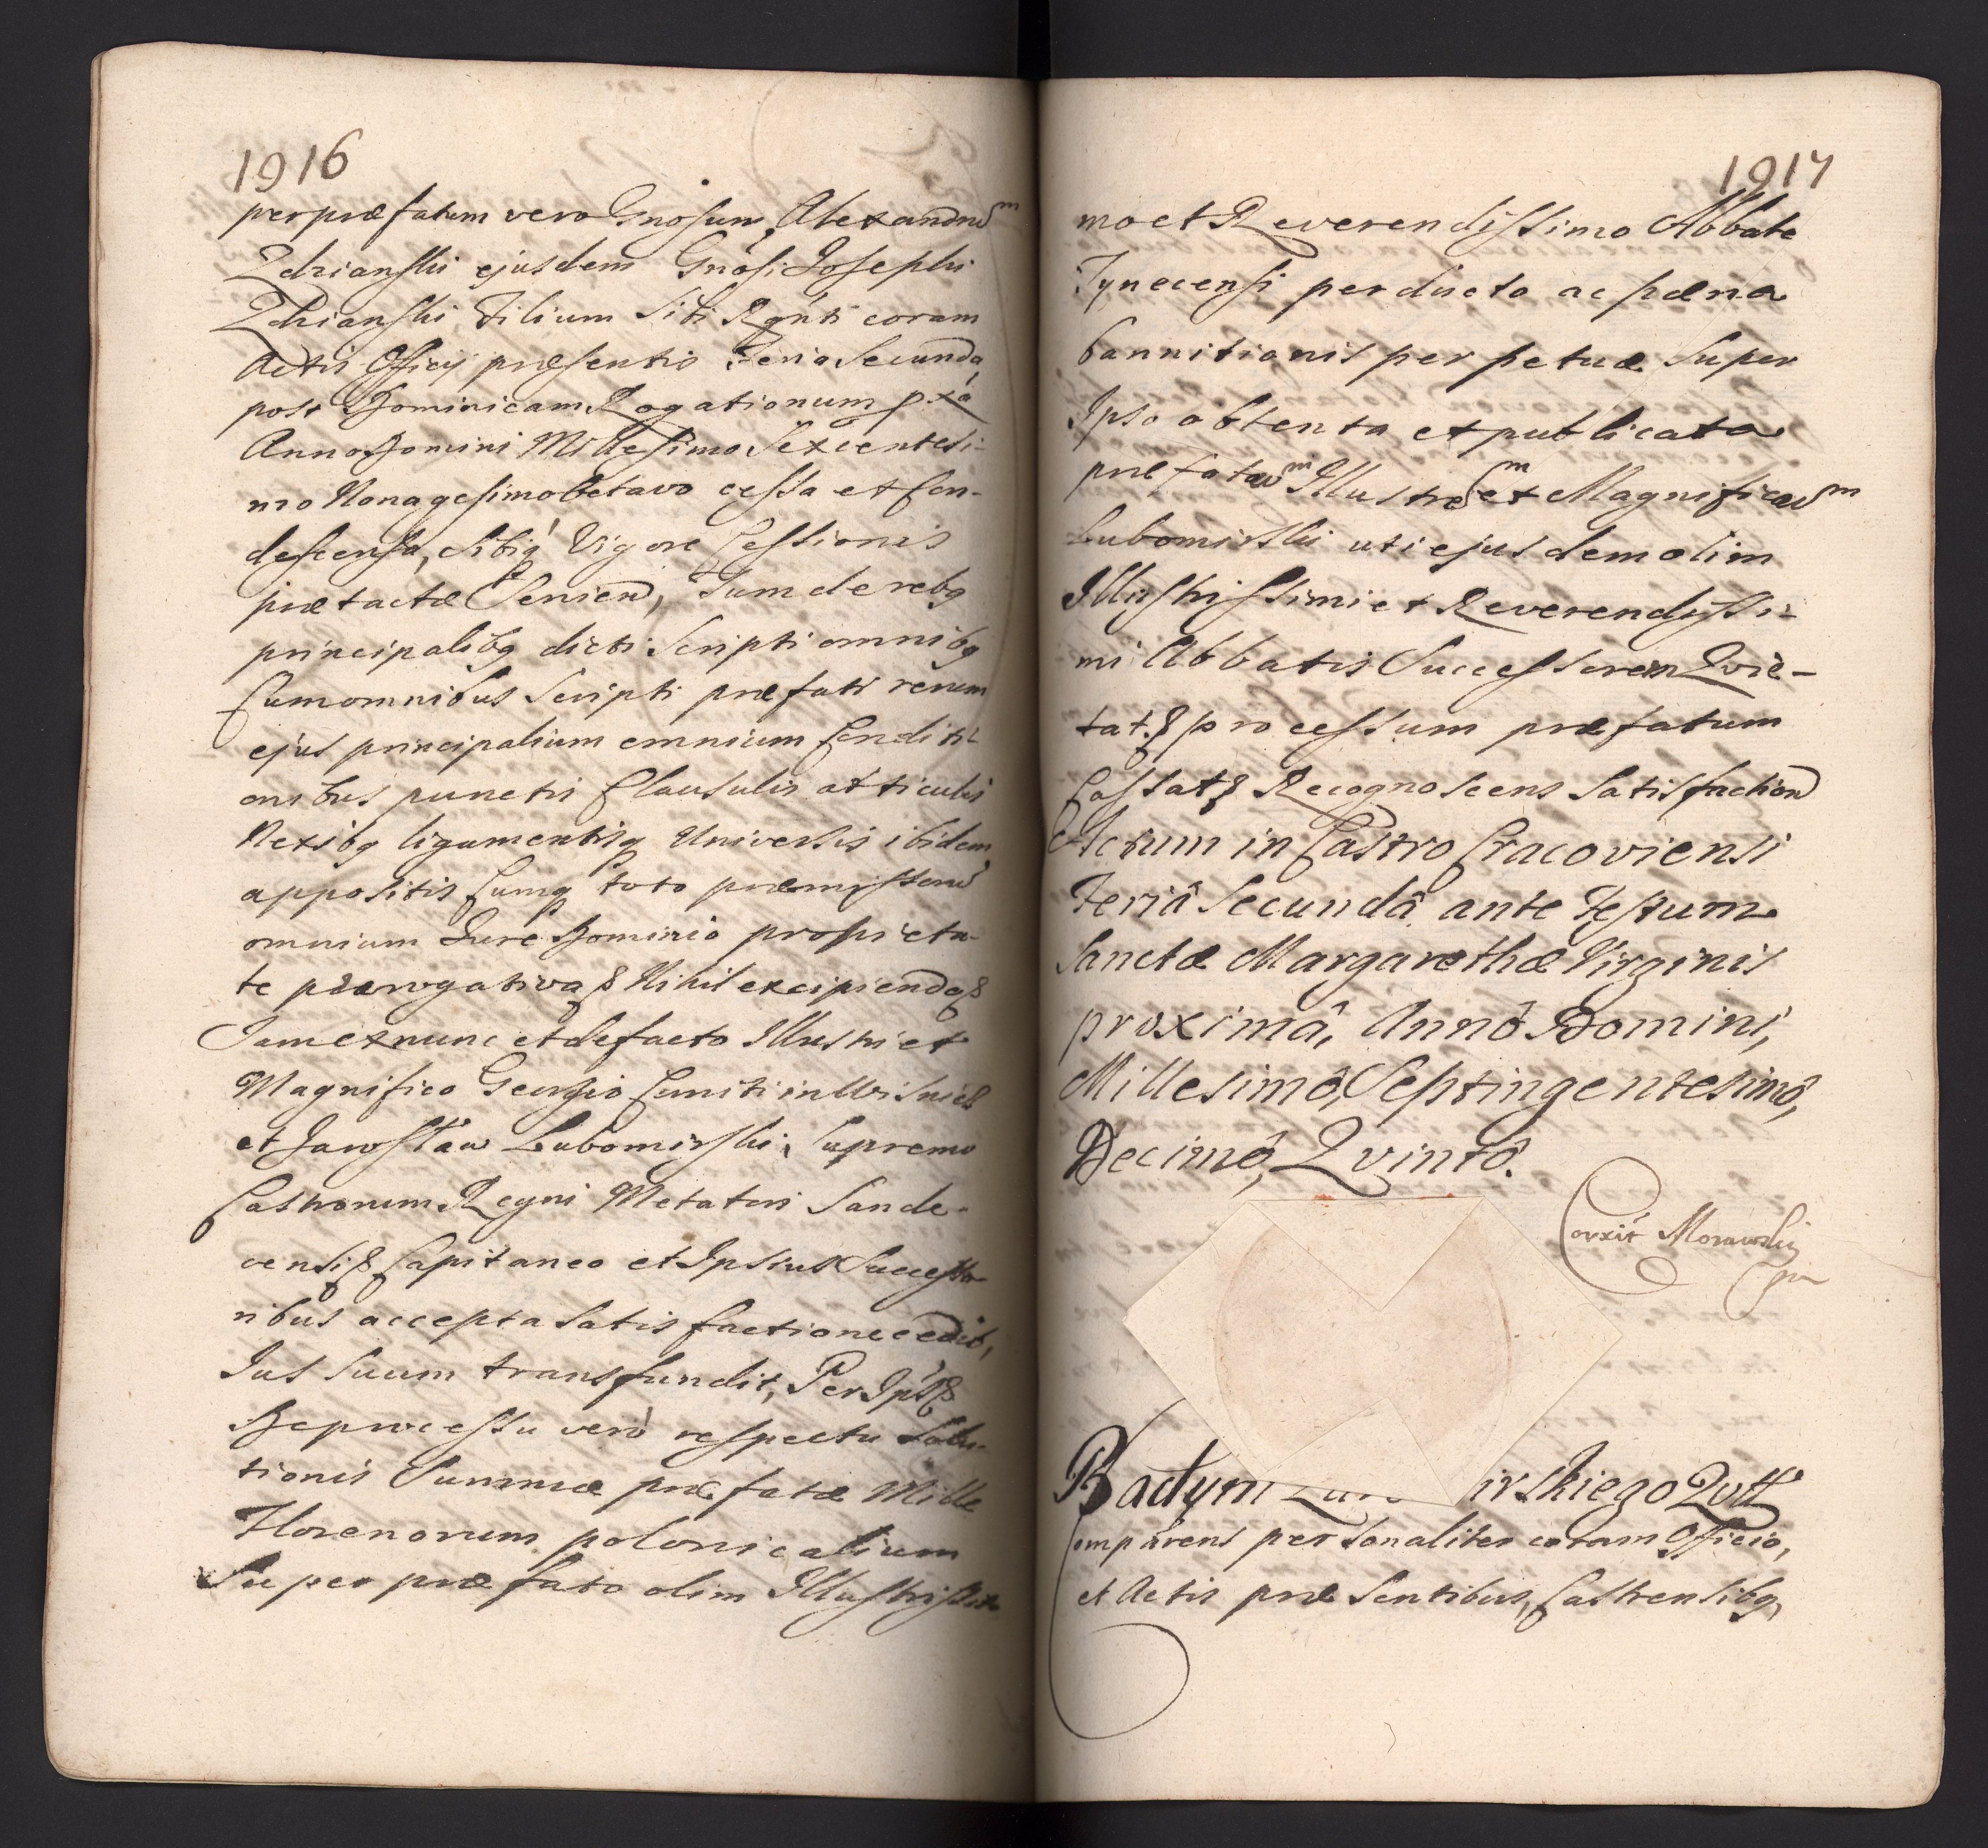 1916
per præfatum vero Gnosum, Alexandrum
Zdrianski ejusdem Gnosi Josephi
Zdrianski Filium Sibi Rgnti coram
Actis Officij præsentis Feria Secunda
post Dominicam Rogationum pxa
Anno Domini Millesimo Sexcentesi-
mo Nonagesimo Octavo cessa et Con-
descensa, Sibiq Vigore Cessionis
prætactæ Servien, Tum de rebq
principalibq dicti Scripti omnibq
Cum omnibus Scripti præfati rerum
ejus principalium omnium Conditi-
onibus punctis Clausulis articulis
Nexibq ligamentisq Universis ibidem
appositis Cumq toto præmissoru
omnium Jure Dominio proprieta-
te prærogativa & Nihil excipiendo &
Jam ex nunc et de facto Illustri et
Magnifico Georgio Comiti in Wisnicz
et Jarosław Lubomirski, Supremo
Castrorum Regni Metatori Sande-
censi & Capitaneo et Ipsius Successo-
ribus accepta Satisfactione cedit,
Jus Suum transfundit, Per Ips &
De processu verò respectu Solu-
tionis Summæ præfatæ Mille
Florenorum polonicalium
Super præfato olim Illustrissi-
1917
mo et Reverendissimo Abbate
Tynecensi perducto ac pæna
bannitionis perpetuæ Super
Ipso obtenta et publicata
præfatum Illustrem et Magnificum
Lubomirski uti ejusdem olim
Illustrissimi et Reverendissi-
mi Abbatis Successorem Qvie-
tat & processum præfatum
Cassat & Recognoscens Satisfaction
Actum in Castro Cracoviensi
Feriâ Secundâ ante Festum
Sanctæ Margarethæ Virginis
proximâ, Annô Domini,
Millesimô, Septingentesimô,
Decimô, Qvintô.
Corxit Morawski
pr
Bactym irskiego Qvtt
Comparens personaliter coram Officio,
et Actis præsentibus, Castrensibq,